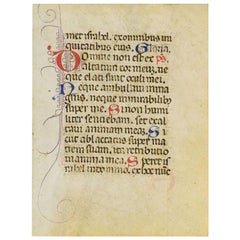 met israhel. ex omnibus in
iquitatibus eius. Gloria. ps
Domine non est ex
altatum cor meum, ne
que elati sunt oculi mei.
Neque ambulavi in ma
gnis. neque in mirabilib;
super me. Si non humi
liter sentiebam. set ex
altavi animam meam. Si
cut ablactatus super ma
trem suam. ita retributio
in anima mea. Speret is
rahel in domino. ex hoc